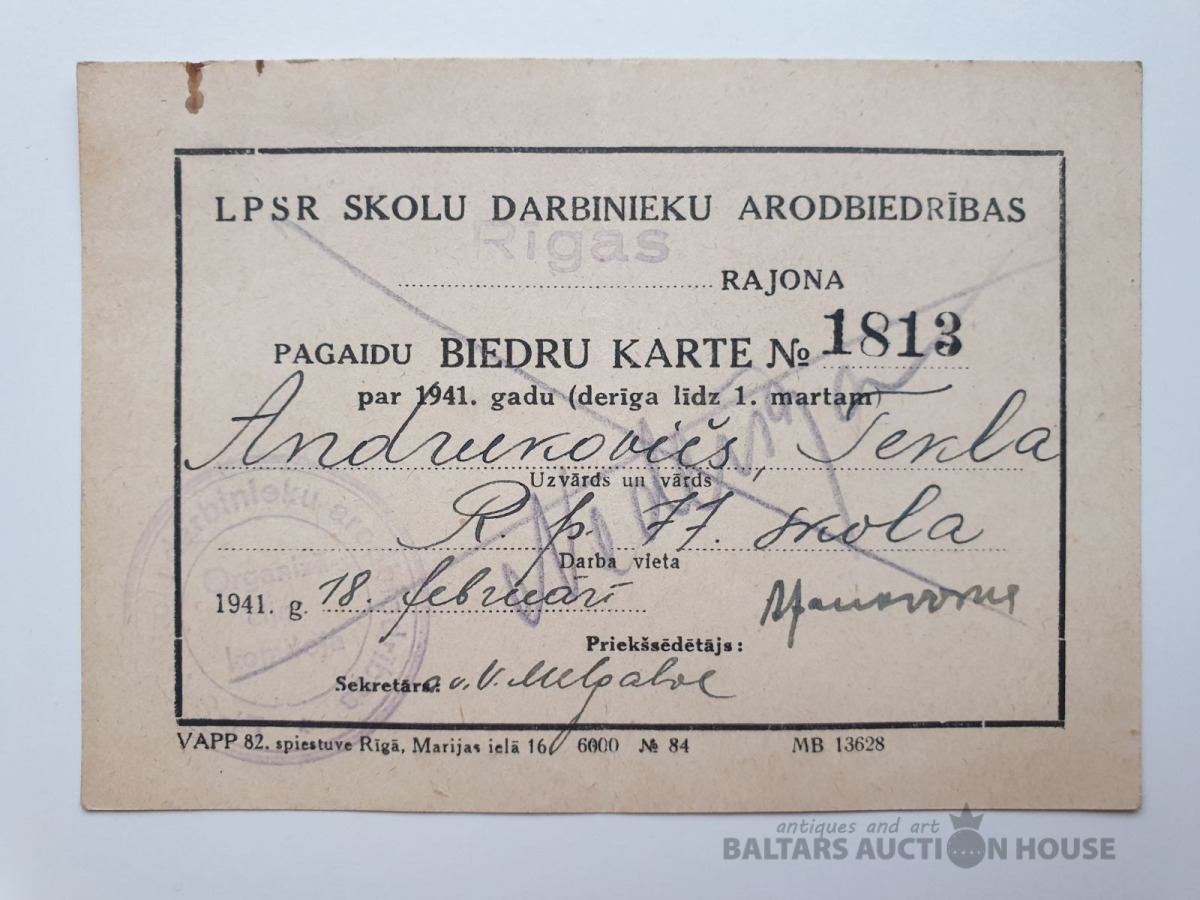 LPSR SKOLU DARBINIEKU ARODBIEDRĪBAS
Rīgas
RAJONA
PAGAIDU BIEDRU KARTE № 1813
par 1941. gadu (derīga līdz 1. martam)
Andrukovičs, Tekla
Uzvārds un vārds
R. p. 77. skola
Darba vieta
1941. g. 18. februārī
Priekšsēdētājs:
Sekretārs:
VAPP 82. spiestuve Rīgā, Marijas ielā 16 6000 № 84 MB 13628
antiques and art
BALTARS AUCTION HOUSE